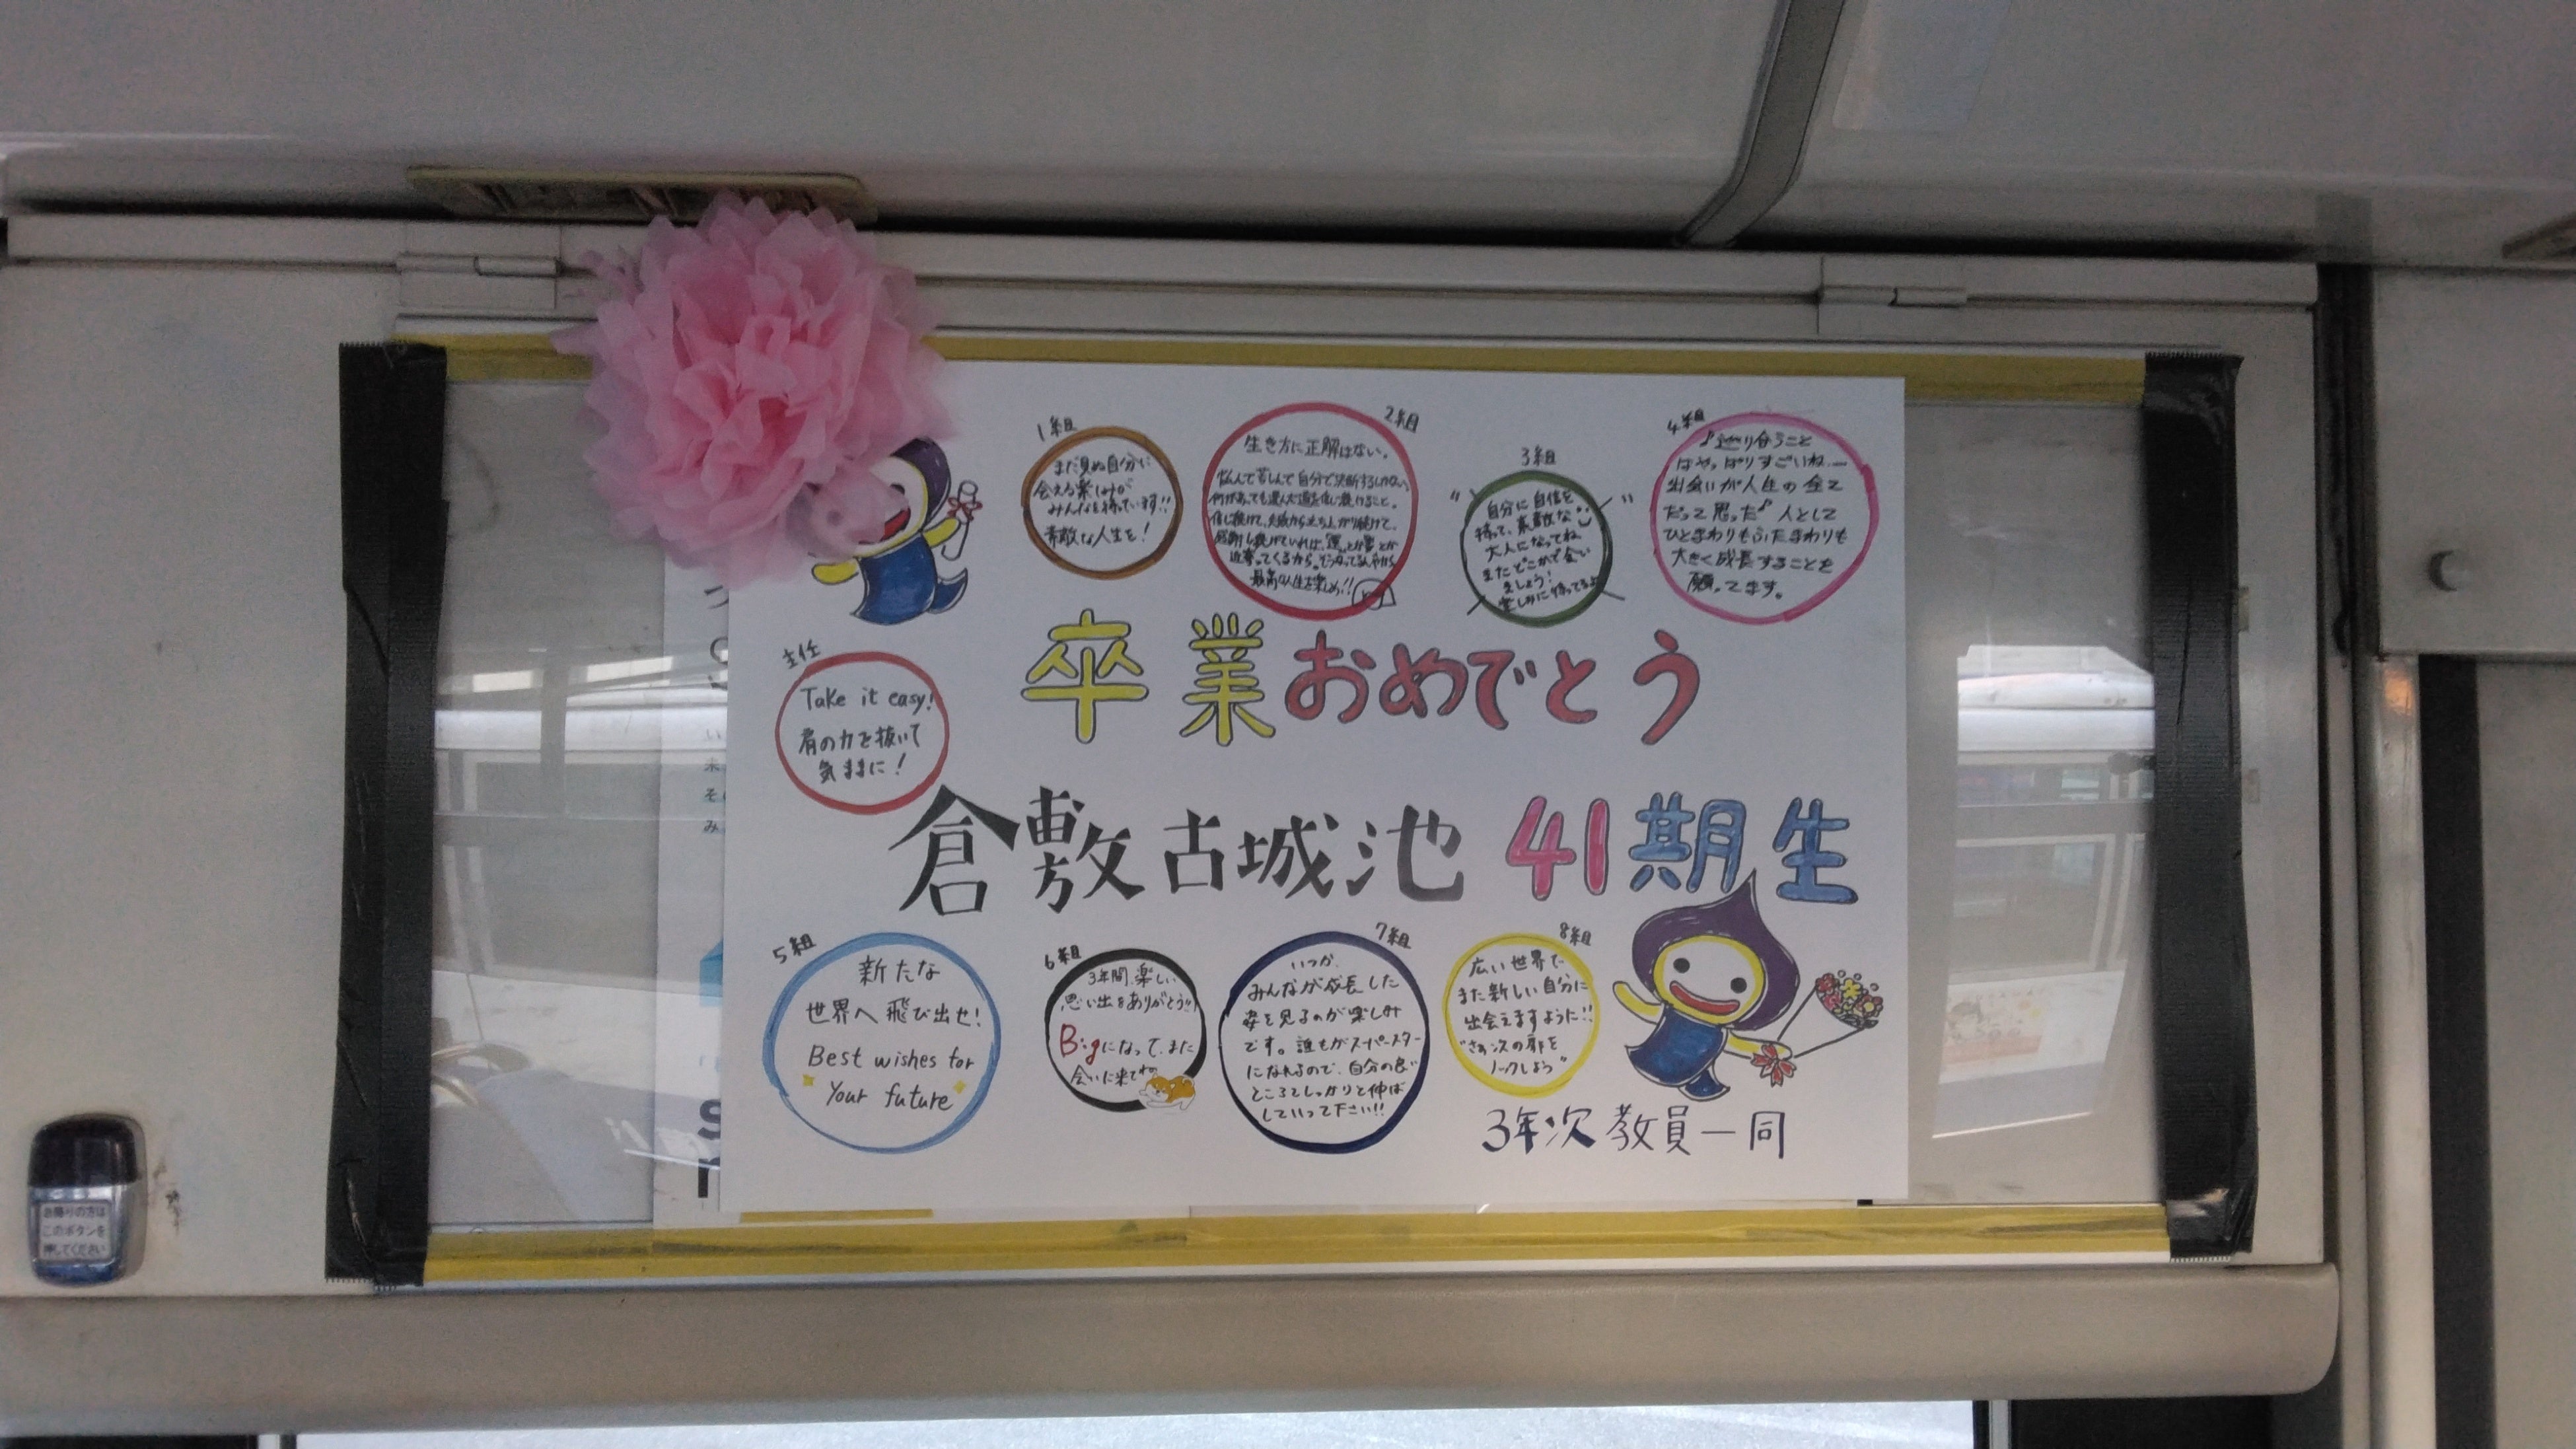 1組
まだ見ぬ自分に
会える楽しみが
みんなを待っています!!
素敵な人生を!
2組
生き方に正解はない。
悩んで苦しんで自分で決断するしかない
何があっても選んだ道を信じ続けること。
信じ続けて、失敗から立ち上がり続けて、
感謝し続けていれば、運とか夢とか
近寄ってくるから。
最高の人生を楽しめ!!
3組
自分に自信を
持って、素敵な
大人になってね
またどこかで会い
ましょう!
楽しみに待ってるよ
4組
♪巡り合うこと
はやっぱりすごいね
出会いが人生の全て
だって思った♪人として
ひとまわりもふたまわりも
大きく成長することを
願ってます。
主任
Take it easy!
肩の力を抜いて
気ままに!
卒業おめでとう
倉敷古城池 41期生
5組
新たな
世界へ飛び出せ!
Best wishes for
Your future
6組
3年間、楽しい
思い出をありがとう!!
Bigになって、また
会いに来てね
7組
いつか、
みんなが成長した
姿を見るのが楽しみ
です。誰もがスーパースター
になれるので、自分の良い
ところをしっかりと伸ば
していって下さい!!
8組
広い世界で
また新しい自分に
出会えますように!!
"さあ次の扉を
ノックしよう"
3年次教員一同
お降りの方は
このボタンを
押してください